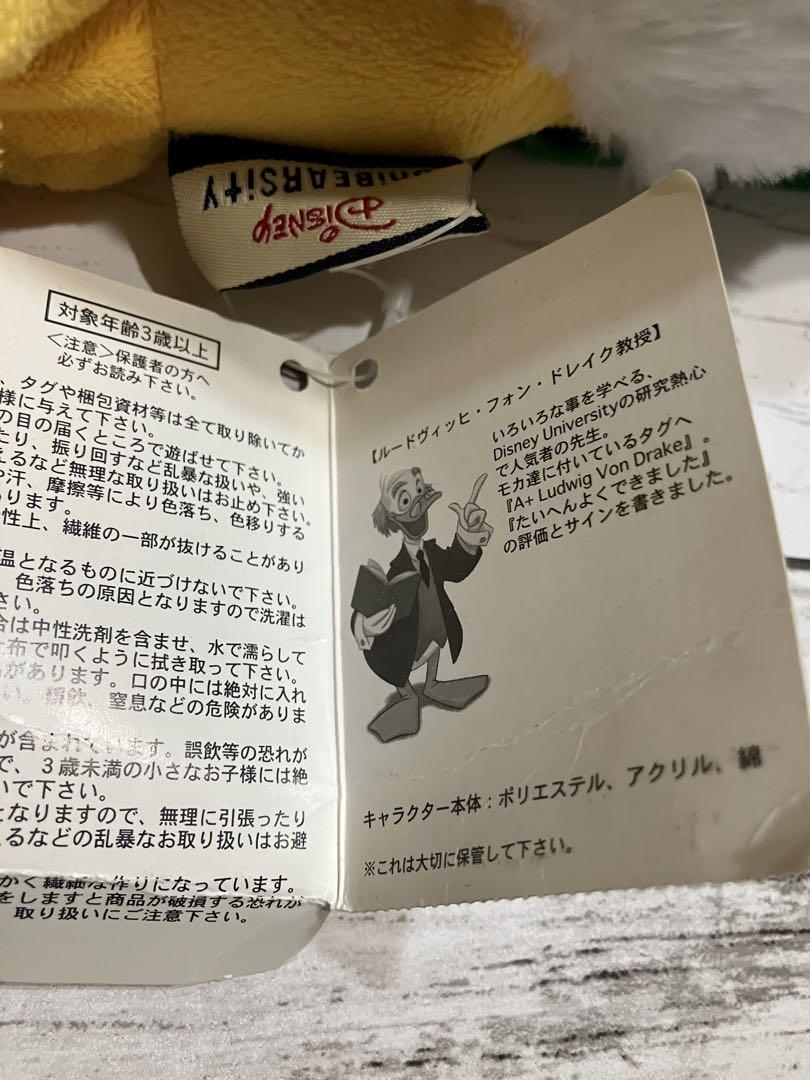 DISNEY
UniBEARSiTY
対象年齢3歳以上
＜注意＞保護者の方へ
必ずお読み下さい。
、タグや梱包資材等は全て取り除いてか
様に与えて下さい。
の目の届くところで遊ばせて下さい。
たり、振り回すなど乱暴な扱いや、強い
えるなど無理な取り扱いはお止め下さい。
や汗、摩擦等により色落ち、色移りする
あります。
性上、繊維の一部が抜けることがあり
温となるものに近づけないで下さい。
、色落ちの原因となりますので洗濯は
さい。
合は中性洗剤を含ませ、水で濡らして
た布で叩くように拭き取って下さい。
があります。口の中には絶対に入れ
い。誤飲、窒息などの危険がありま
が含まれています。誤飲等の恐れが
で、3歳未満の小さなお子様には絶
いで下さい。
となりますので、無理に引張ったり
えるなどの乱暴なお取り扱いはお避
かく繊細な作りになっています。
をしますと商品が破損する恐れが
取り扱いにご注意下さい。
【ルードヴィッヒ・フォン・ドレイク教授】
いろいろな事を学べる、
Disney Universityの研究熱心
で人気者の先生。
モカ達に付いているタグへ
『A+ Ludwig Von Drake』。
『たいへんよくできました』
の評価とサインを書きました。
キャラクター本体：ポリエステル、アクリル、綿
※これは大切に保管して下さい。